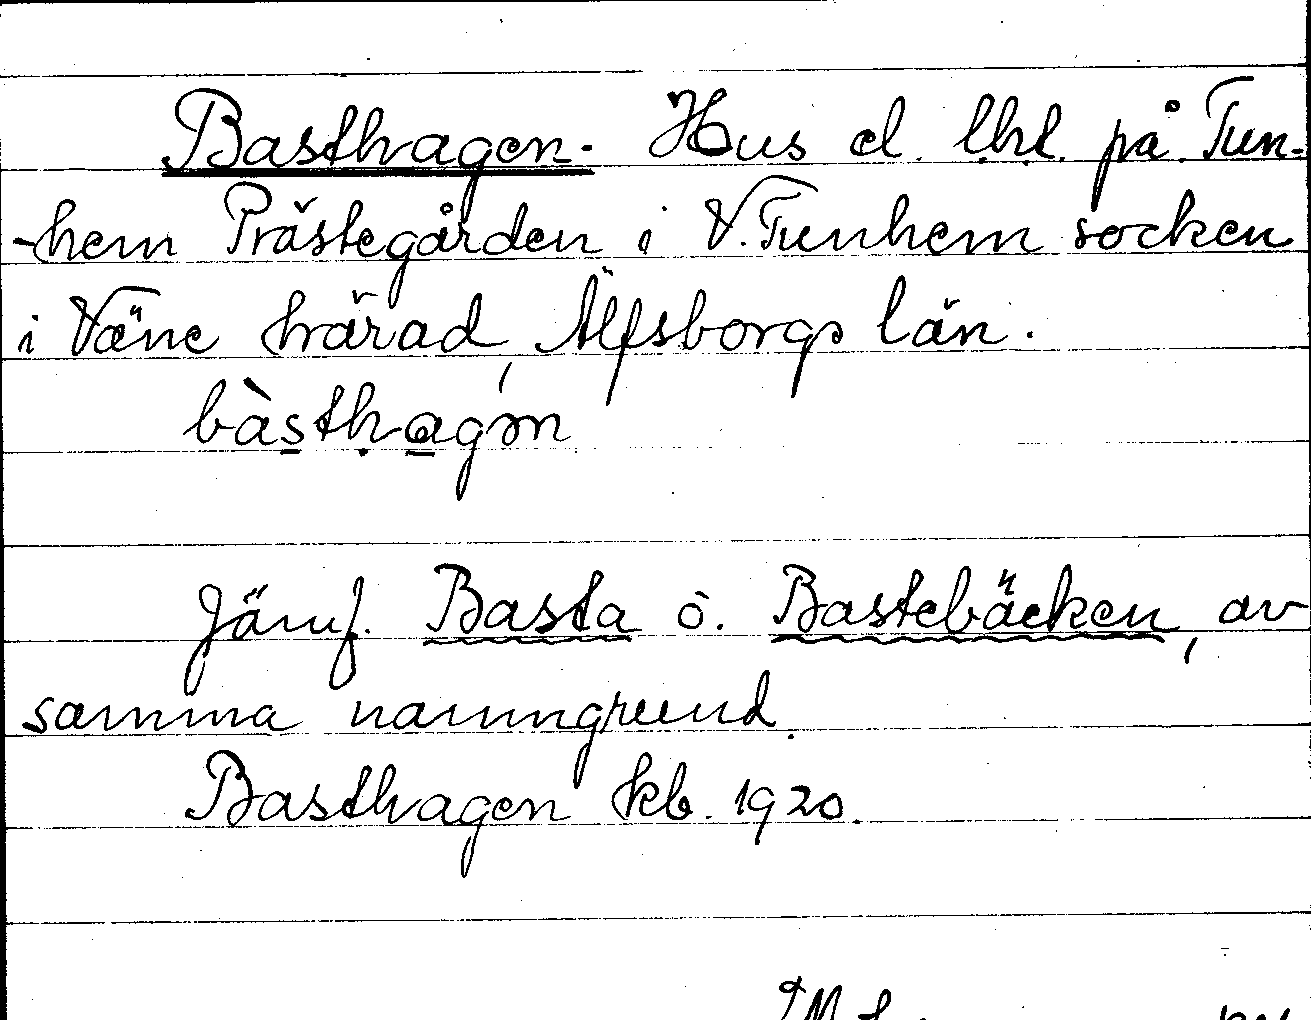 Basthagen. Hus el. lht. på Tun-
-hem Prästegården i V. Tunhem socken
i Väne härad, Älfsborgs län.
bàsthagən
Jämf. Basta o. Bastebäcken, av
samma namngrund.
Basthagen kb. 1920.